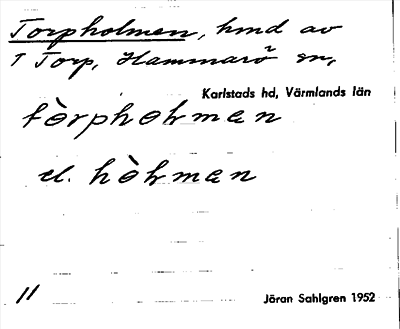 Torpholmen, hmd av
1 Torp, Hammarö sn,
Karlstads hd, Värmlands län
tòrpholmen
el. hòlmen
11
Jöran Sahlgren 1952